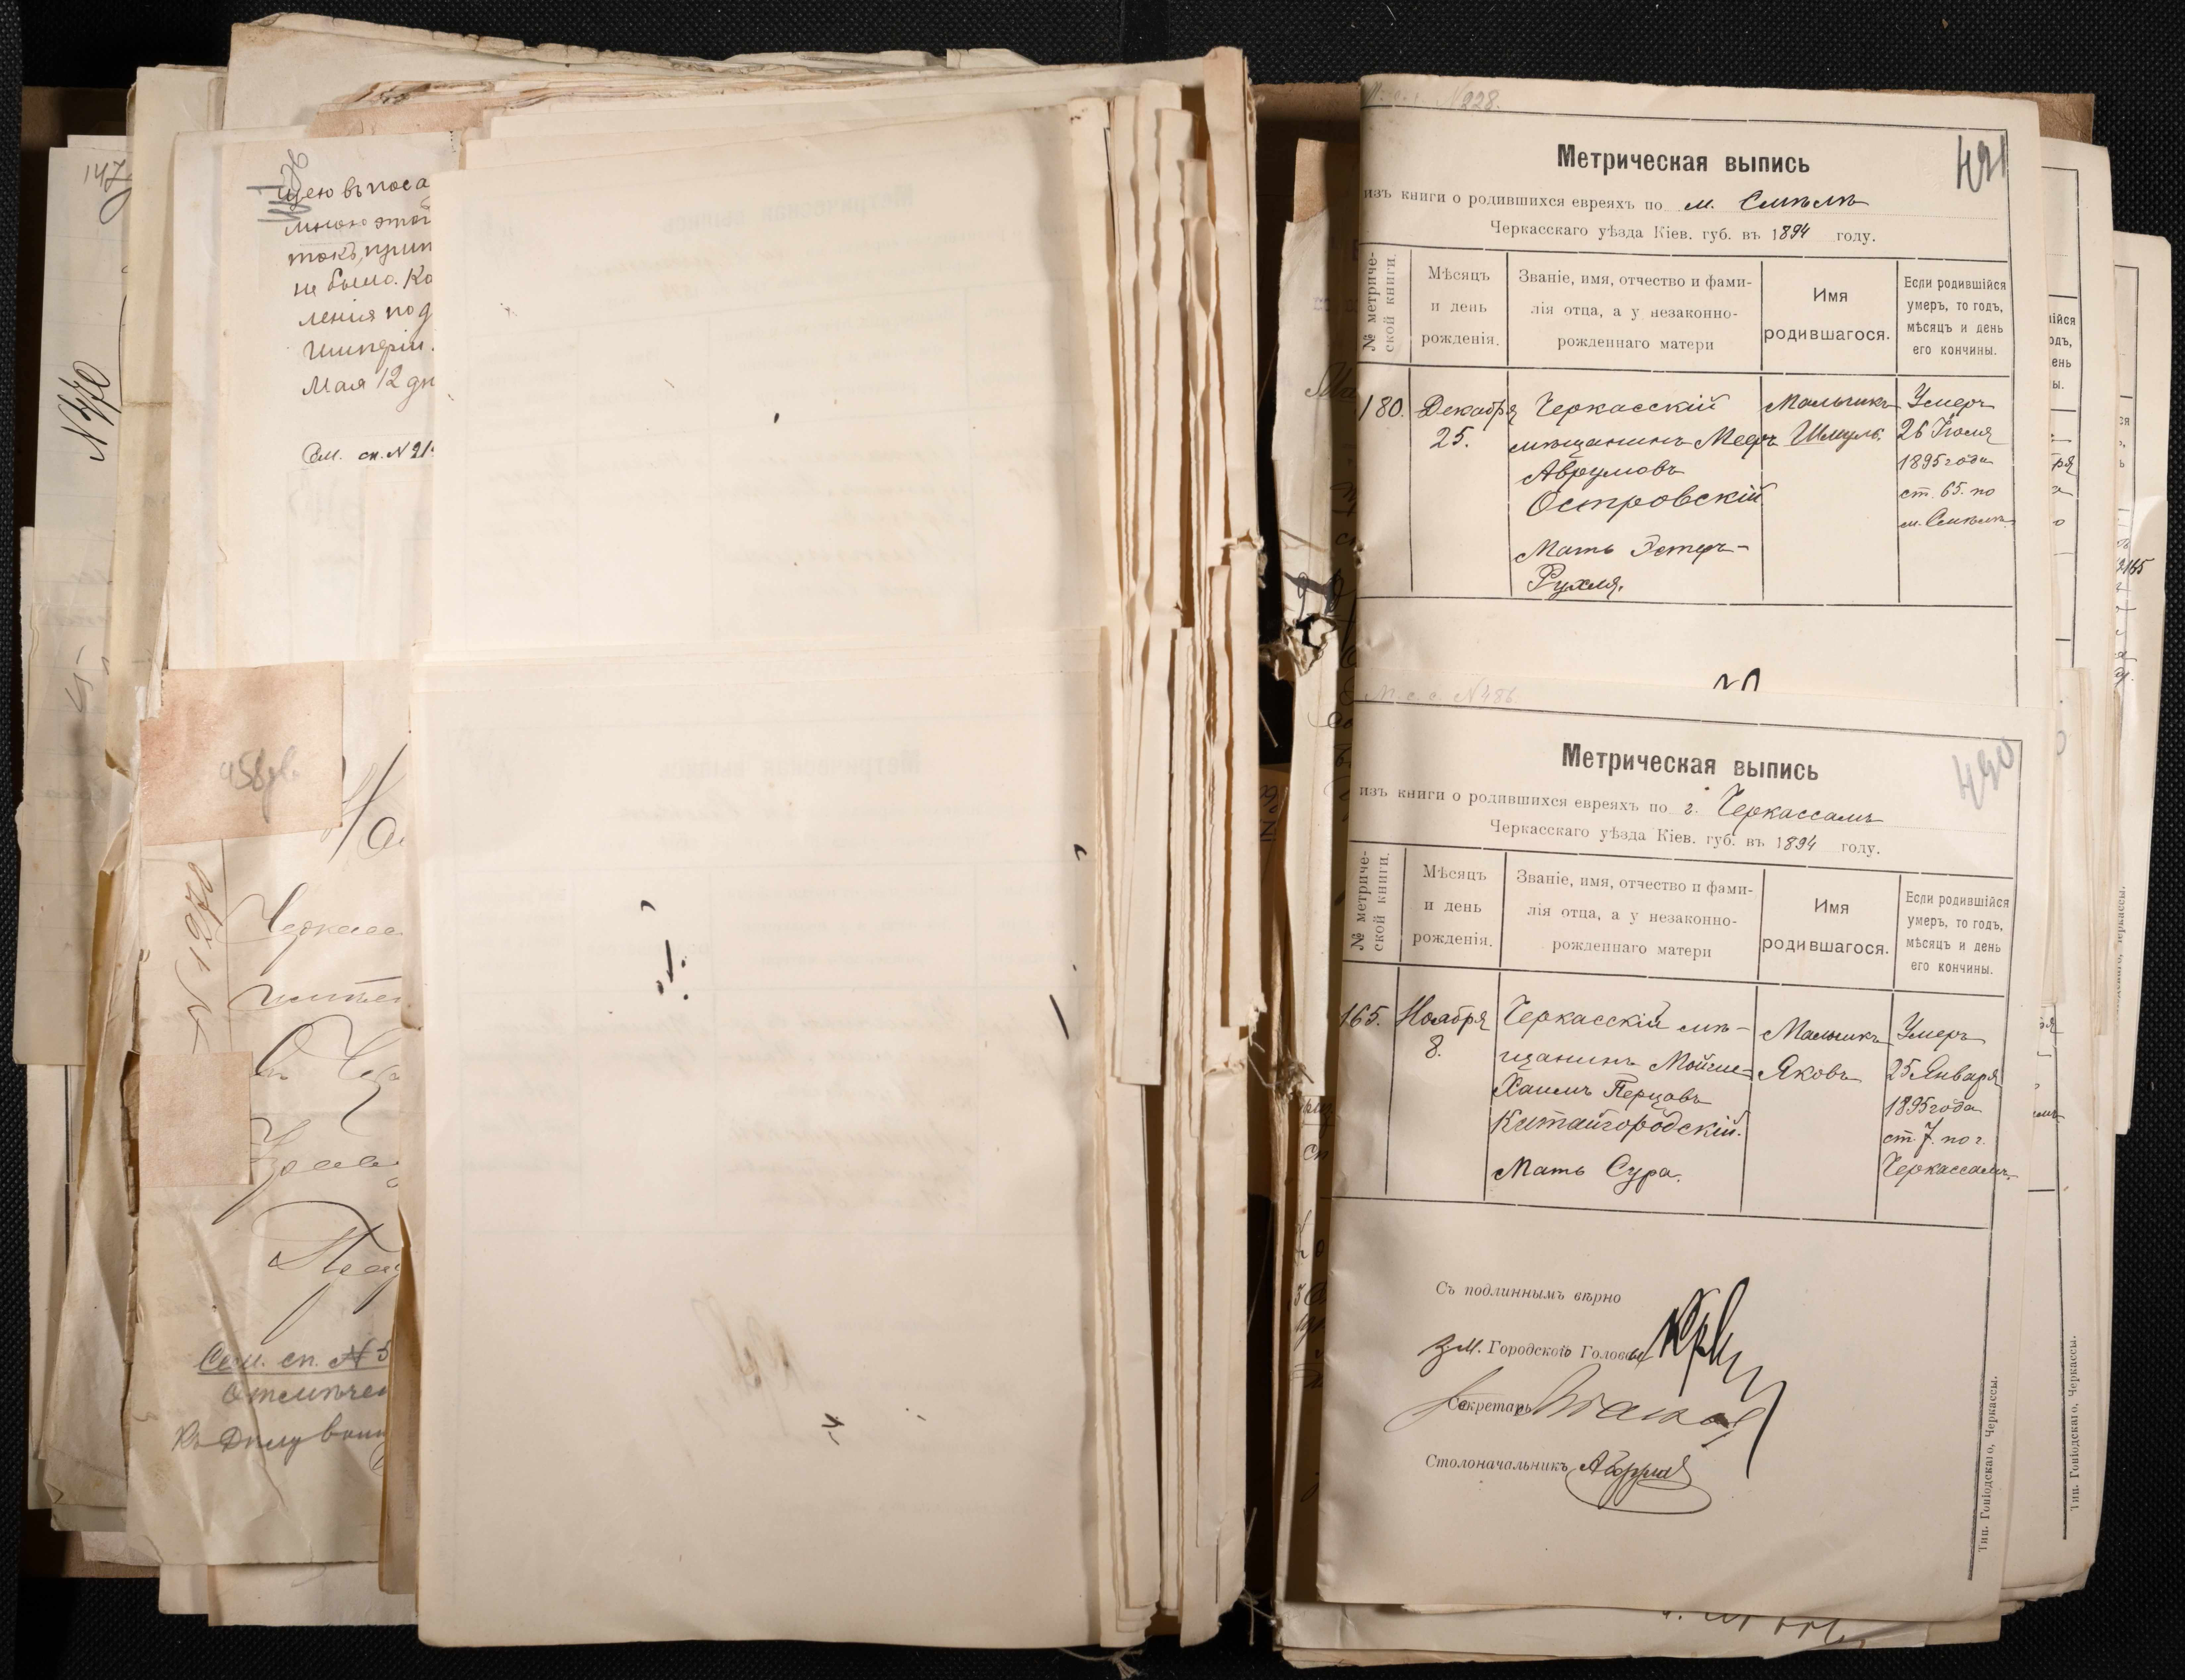 147
N 770
щею въ поса
мною этой
токъ, прин
не было. Ко
ленія под
Имперіи.
Мая 12 дн
См. сп. N 21
458
N 1270
Черкасс
Сем. сп. N 5
Отмѣчен
N 228.
421
Метрическая выпись
изъ книги о родившихся евреяхъ по м. Смѣлѣ
Черкасскаго уѣзда Кіев. губ. въ 1894 году.
№ метриче-
ской книги.
Мѣсяцъ
и день
рожденія.
Званіе, имя, отчество и фами-
лія отца, а у незаконно-
рожденнаго матери
Имя
родившагося.
Если родившійся
умеръ, то годъ,
мѣсяцъ и день
его кончины.
180.
Декабря
25.
Черкасскій
мѣщанинъ Мееръ
Аврумовъ
Островскій
Мать Эстеръ-
Рухля.
Мальчикъ
Шмуль.
Умеръ
26 Іюля
1895 года
ст. 65. по
м. Смѣлѣ
М. с. с. N 486
420
Метрическая выпись
изъ книги о родившихся евреяхъ по г. Черкассамъ
Черкасскаго уѣзда Кіев. губ. въ 1894 году.
№ метриче-
ской книги.
Мѣсяцъ
и день
рожденія.
Званіе, имя, отчество и фами-
лія отца, а у незаконно-
рожденнаго матери
Имя
родившагося.
Если родившійся
умеръ, то годъ,
мѣсяцъ и день
его кончины.
165.
Ноября
8.
Черкасскій мѣ-
щанинъ Мойше-
Хаимъ Перцовъ
Китайгородскій.
Мать Сура.
Мальчикъ
Яковъ
Умеръ
25 Января
1895 года
ст. 7. по г.
Черкассамъ.
Съ подлиннымъ вѣрно
Зм. Городского Головы
Секретарь
Столоначальникъ
Тип. Гоніодскаго, Черкассы.
Тип. Гоніодскаго, Черкассы.